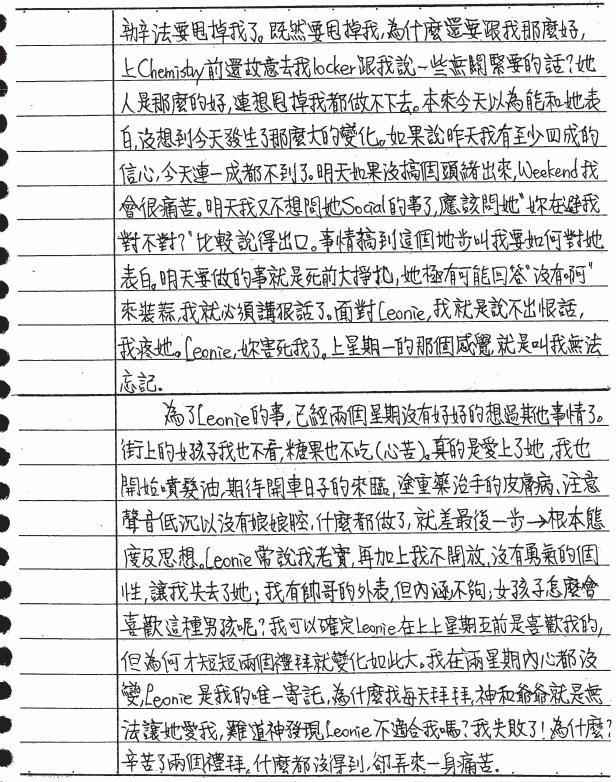 辦法要甩掉我了。既然要甩掉我,為什麼還要跟我那麼好,
上Chemistry前還故意去我locker跟我說一些無關緊要的話?她
人是那麼的好,連想甩掉我都做不下去。本來今天以為能和她表
白,沒想到今天發生了那麼大的變化。如果說昨天我有至少四成的
信心,今天連一成都不到了。明天如果沒搞個頭緒出來,Weekend我
會很痛苦。明天我又不想問她Social的事了,應該問她"妳在避我
對不對?"比較說得出口。事情搞到這個地步叫我要如何對她
表白。明天要做的事就是死前大掙扎,她極有可能回答"沒有啊"
來裝蒜,我就必須講狠話了。面對Leonie,我就是說不出恨話,
我疼她。Leonie,妳害死我了。上星期一的那個感覺就是叫我無法
忘記.
為了Leonie的事,已經兩個星期沒有好好的想過其他事情了。
街上的女孩子我也不看,糖果也不吃(心苦)。真的是愛上了她,我也
開始噴髮油,期待開車日子的來臨,塗重藥治手的皮膚病、注意
聲音低沉以沒有娘娘腔,什麼都做了,就差最後一步→根本態
度及思想。Leonie常說我老實,再加上我不開放,沒有勇氣的個
性,讓我失去了她;我有帥哥的外表,但內涵不夠,女孩子怎麼會
喜歡這種男孩呢?我可以確定Leonie在上上星期五前是喜歡我的,
但為何才短短兩個禮拜就變化如此大。我在兩星期內心都沒
變,Leonie是我的唯一寄託,為什麼我每天拜拜,神和爺爺就是無
法讓她愛我,難道神發現Leonie不適合我嗎?我失敗了!為什麼?
辛苦了兩個禮拜,什麼都沒得到,卻弄來一身痛苦.